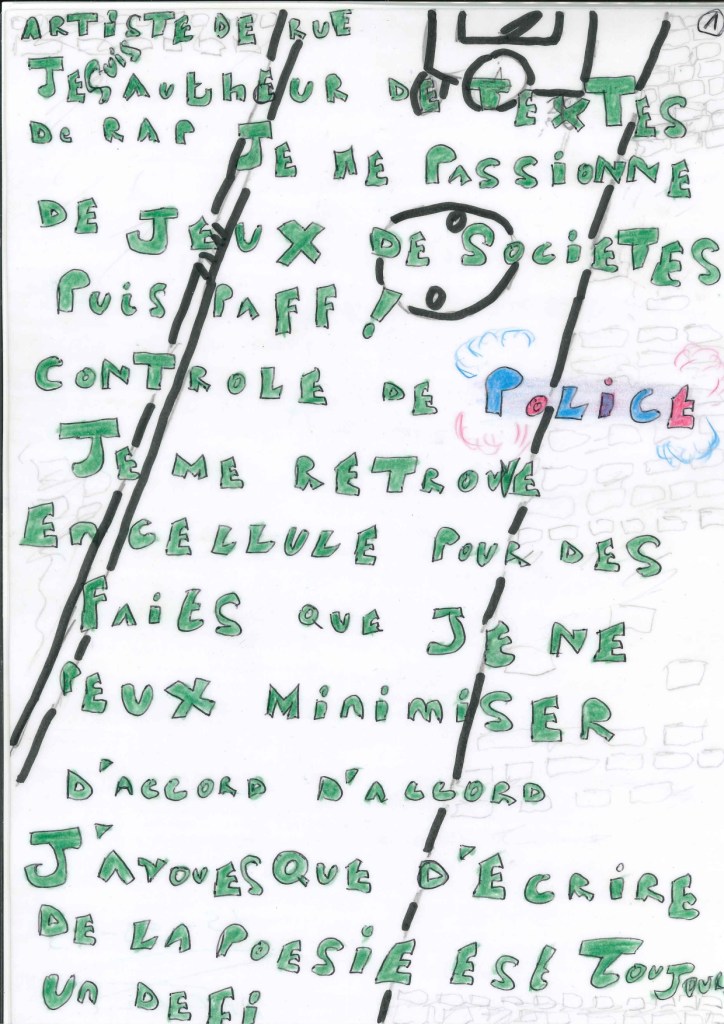 1
ARTISTE DE RUE
JE SUIS AUthEUR DE TEXTES
De RAP JE ME PASSIONNE
DE JEUX DE SOCIETES
PUIS PAFF !
CONTROLE DE POLICE
JE ME RETROUVE
En CELLULE POUR DES
FAitS QUE JE NE
PEUX MinimiSER
D'ACCORD D'ACCORD
J'AVOUES QUE D'ECRIRE
DE LA POESIE ESt TOUJOURS
Un DEFi